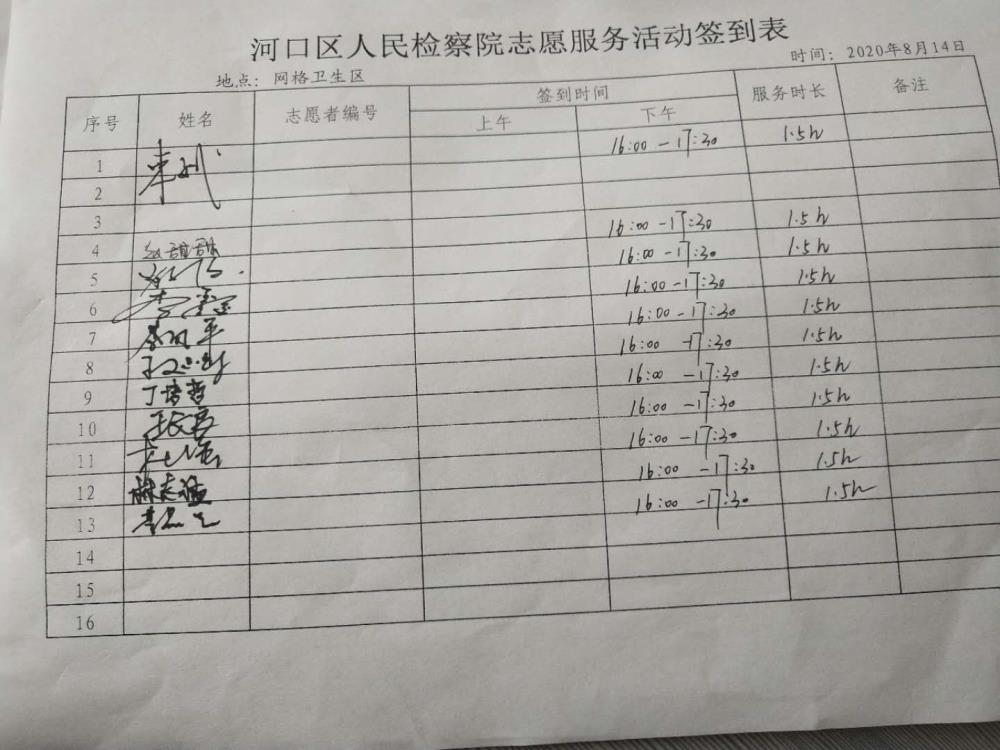 河口区人民检察院志愿服务活动签到表
地点：网格卫生区 时间：2020年8月14日
序号 姓名 志愿者编号 签到时间 服务时长 备注
上午 下午
1 16:00-17:30 1.5h
2
3 16:00-17:30 1.5h
4 赵甜甜 16:00-17:30 1.5h
5 16:00-17:30 1.5h
6 16:00-17:30 1.5h
7 16:00-17:30 1.5h
8 16:00-17:30 1.5h
9 丁培哲 16:00-17:30 1.5h
10 16:00-17:30 1.5h
11 16:00-17:30 1.5h
12 16:00-17:30 1.5h
13
14
15
16